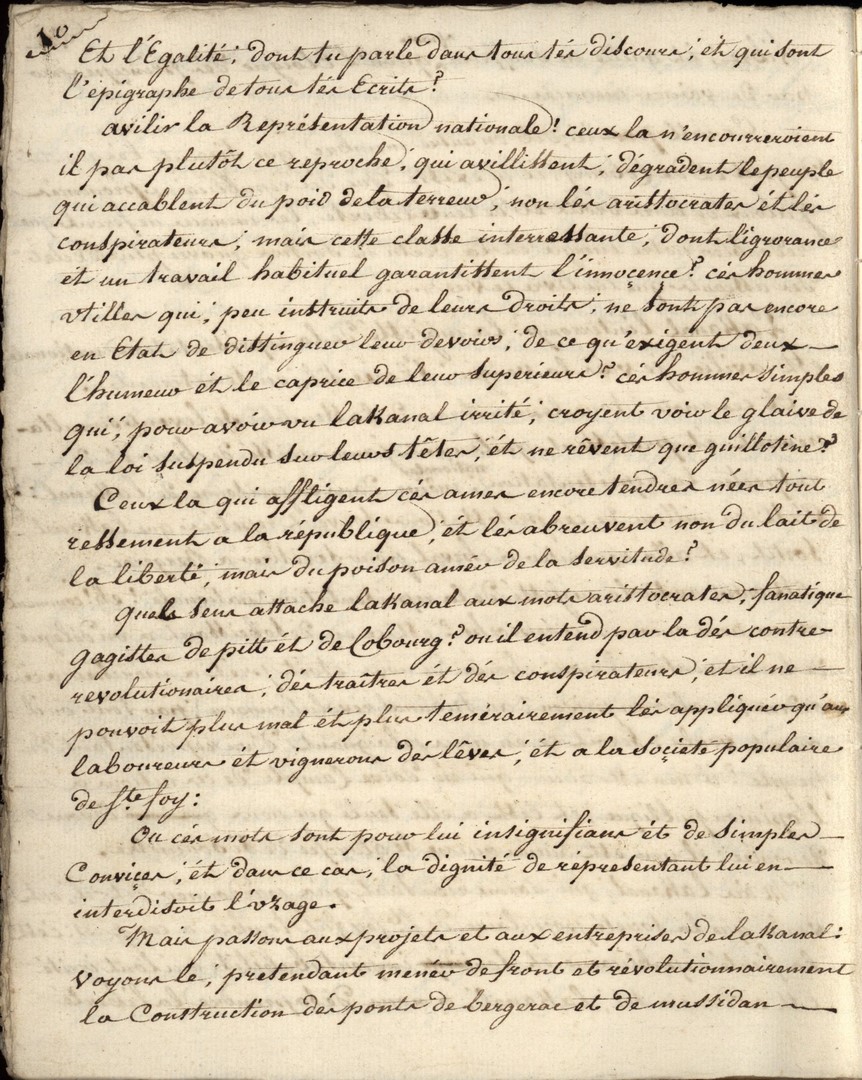 10
Et l'Egalité; dont tu parle dans tous tés discours; ét qui sont
l'épigraphe de tous tés Ecrits?
avilir la Représentation nationale! ceux la n'encourreroient
il pas plutôt ce reproche; qui avillissent; dégradent le peuple
qui accablent du poid de la terreur; non lés aristocrates ét lés
conspirateurs; mais cette classe interressante; dont l'ignorance
ét un travail habituel garantissent l'innocence? cés hommes
utilles qui; peu instruits de leurs droits; ne sont pas encore
en Etat de distinguer leur devoirs; de ce qu'exigent deux
l'humeur ét le caprice de leur superieurs? cés hommes simples
qui; pour avoir vu laKanal irrité; croyent voir le glaive de
la loi suspendu sur leurs têtes; ét ne rêvent que guillotine?
Ceux la qui affligent cés ames encore tendres nées tout
ressement a la république; ét lés abreuvent non du lait de
la liberté; mais du poison amér de la servitude?
quels sens attache laKanal aux mots aristocrates; fanatique
gagistes de pitt ét de Cobourg? ou il entend par la dés contre
revolutionaires; dés traîtres ét dés conspirateurs; et il ne
pouvoit plus mal ét plus temérairement lés appliquér qu'aux
laboureurs ét vignerons dés lêves; ét a la Societé populaire
de Ste foy:
Ou cés mots sont pour lui insignifians ét de simples
Convices; ét dans ce cas; la dignité de réprésentant lui en
interdisoit l'uzage.
Mais passons aux projets et aux entreprises de laKanal:
voyons le; prétendant menér de front et révolutionnairement
la Construction dés ponts de bergerac et de mussidan